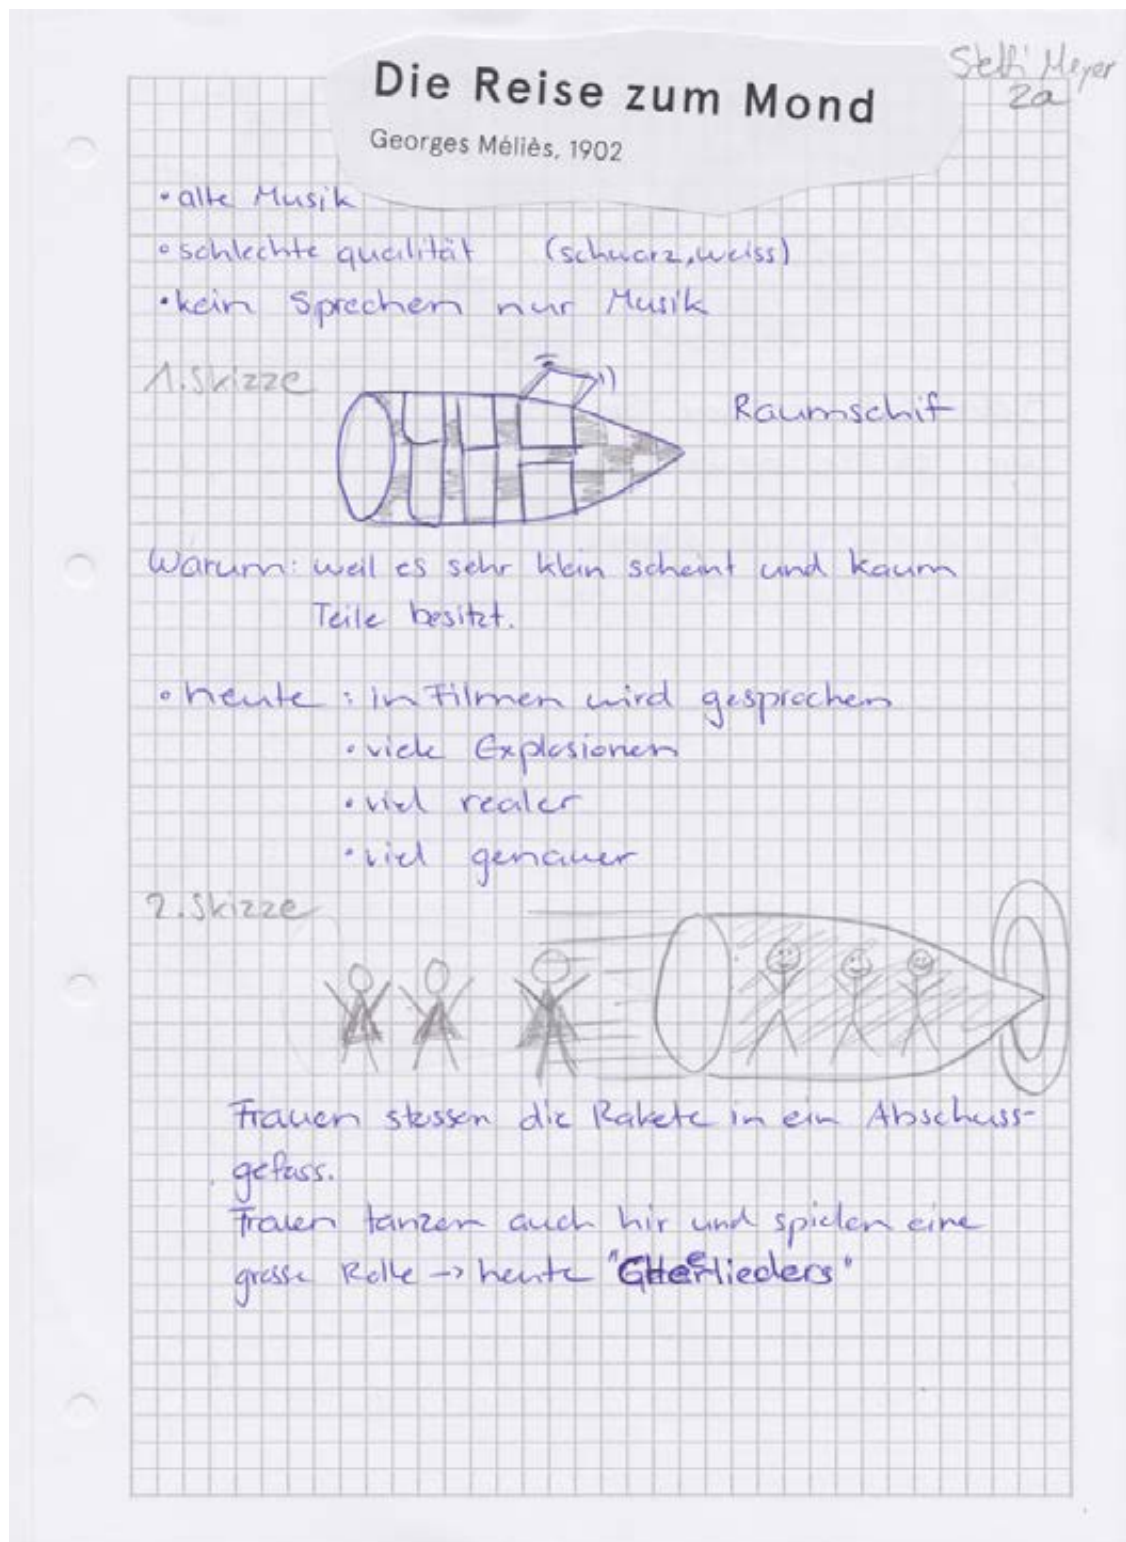 Steffi Meyer
2a
Die Reise zum Mond
Georges Méliès, 1902
• alte Musik
• schlechte qualität (schwarz, weiss)
• kein Sprechen nur Musik
1. Skizze
Raumschif
Warum: weil es sehr klein scheint und kaum
Teile besitzt.
• heute : in Filmen wird gesprochen
• viele Explosionen
• viel realer
• viel genauer
2. Skizze
Frauen stossen die Rakete in ein Abschuss-
gefass.
Frauen tanzen auch hir und spielen eine
grosse Rolle → heute